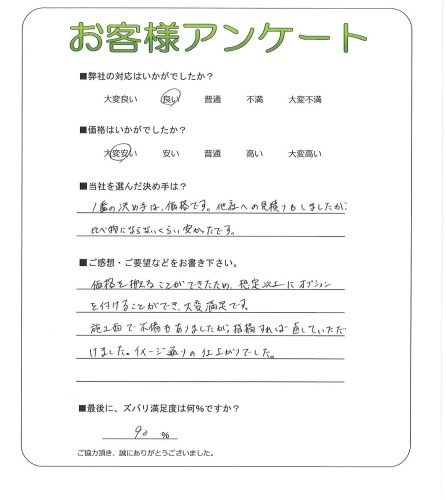 お客様アンケート
■弊社の対応はいかがでしたか？
大変良い 良い 普通 不満 大変不満
■価格はいかがでしたか？
大変安い 安い 普通 高い 大変高い
■当社を選んだ決め手は？
1番の決め手は、価格です。他社への見積りもしましたが、
比べ物にならないくらい安かったです。
■ご感想・ご要望などをお書き下さい。
価格を抑えることができたため、想定以上にオプション
を付けることができ、大変満足です。
施工面で不備もありましたが指摘すれば直していただ
けました。イメージ通りの仕上がりでした。
■最後に、ズバリ満足度は何％ですか？
90 ％
ご協力頂き、誠にありがとうございました。